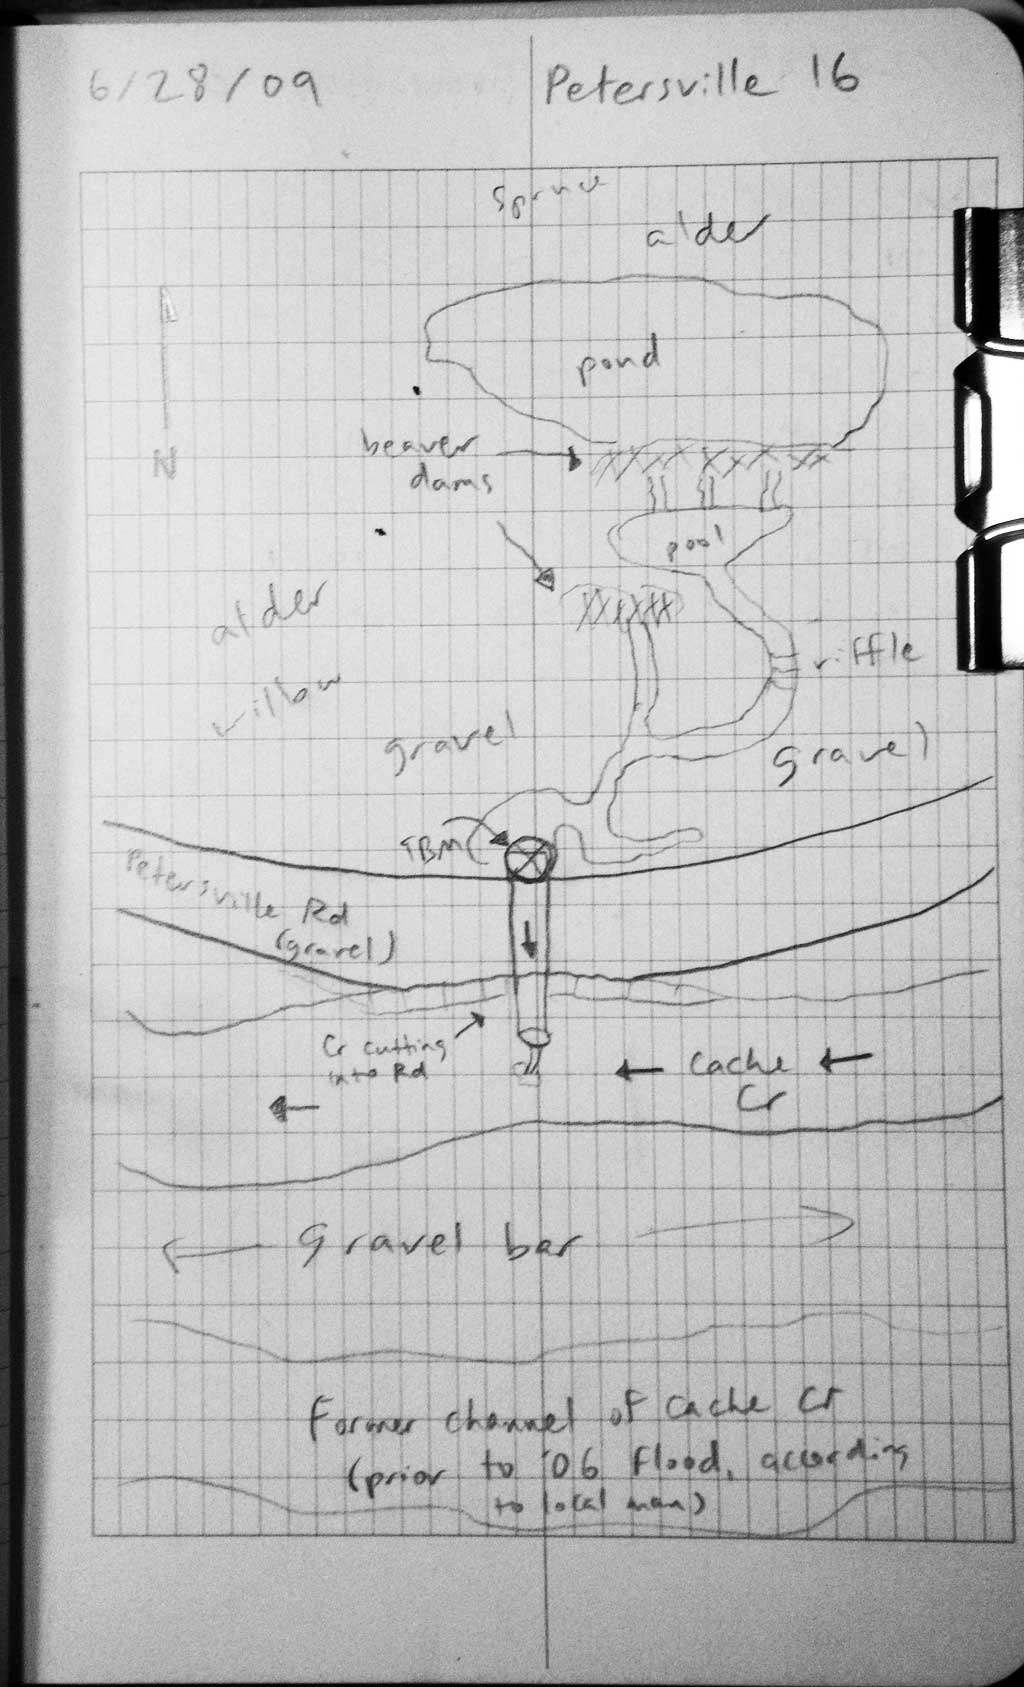 6/28/09
Petersville 16
Spruce
alder
pond
N
beaver
dams
pool
alder
riffle
willow
gravel
gravel
TBM
Petersville Rd
(gravel)
Cr cutting
into Rd
Cache
Cr
Gravel bar
Former channel of Cache Cr
(prior to '06 flood, according
to local man)